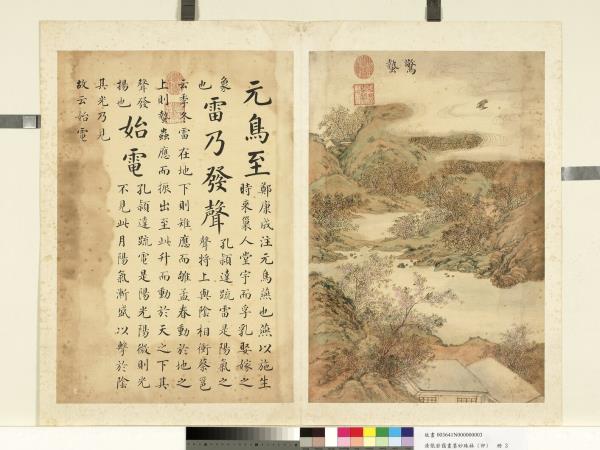 驚蟄
元鳥至
鄭康成注元鳥燕也燕以施生
時來巢人堂宇而孚乳娶嫁之
象
也
雷乃發聲
孔穎達疏雷是陽氣之
聲將上與陰相衝蔡邕
云季冬雷在地下則雉應而雊孟春動於地之
上則蟄蟲應而振出至此升而動於天之下其
聲發
揚也
始電
孔穎達疏電是陽光陽微則光
不見此月陽氣漸盛以擊於陰
其光乃見
故云始電
故畫 003641N000000003
冊 3